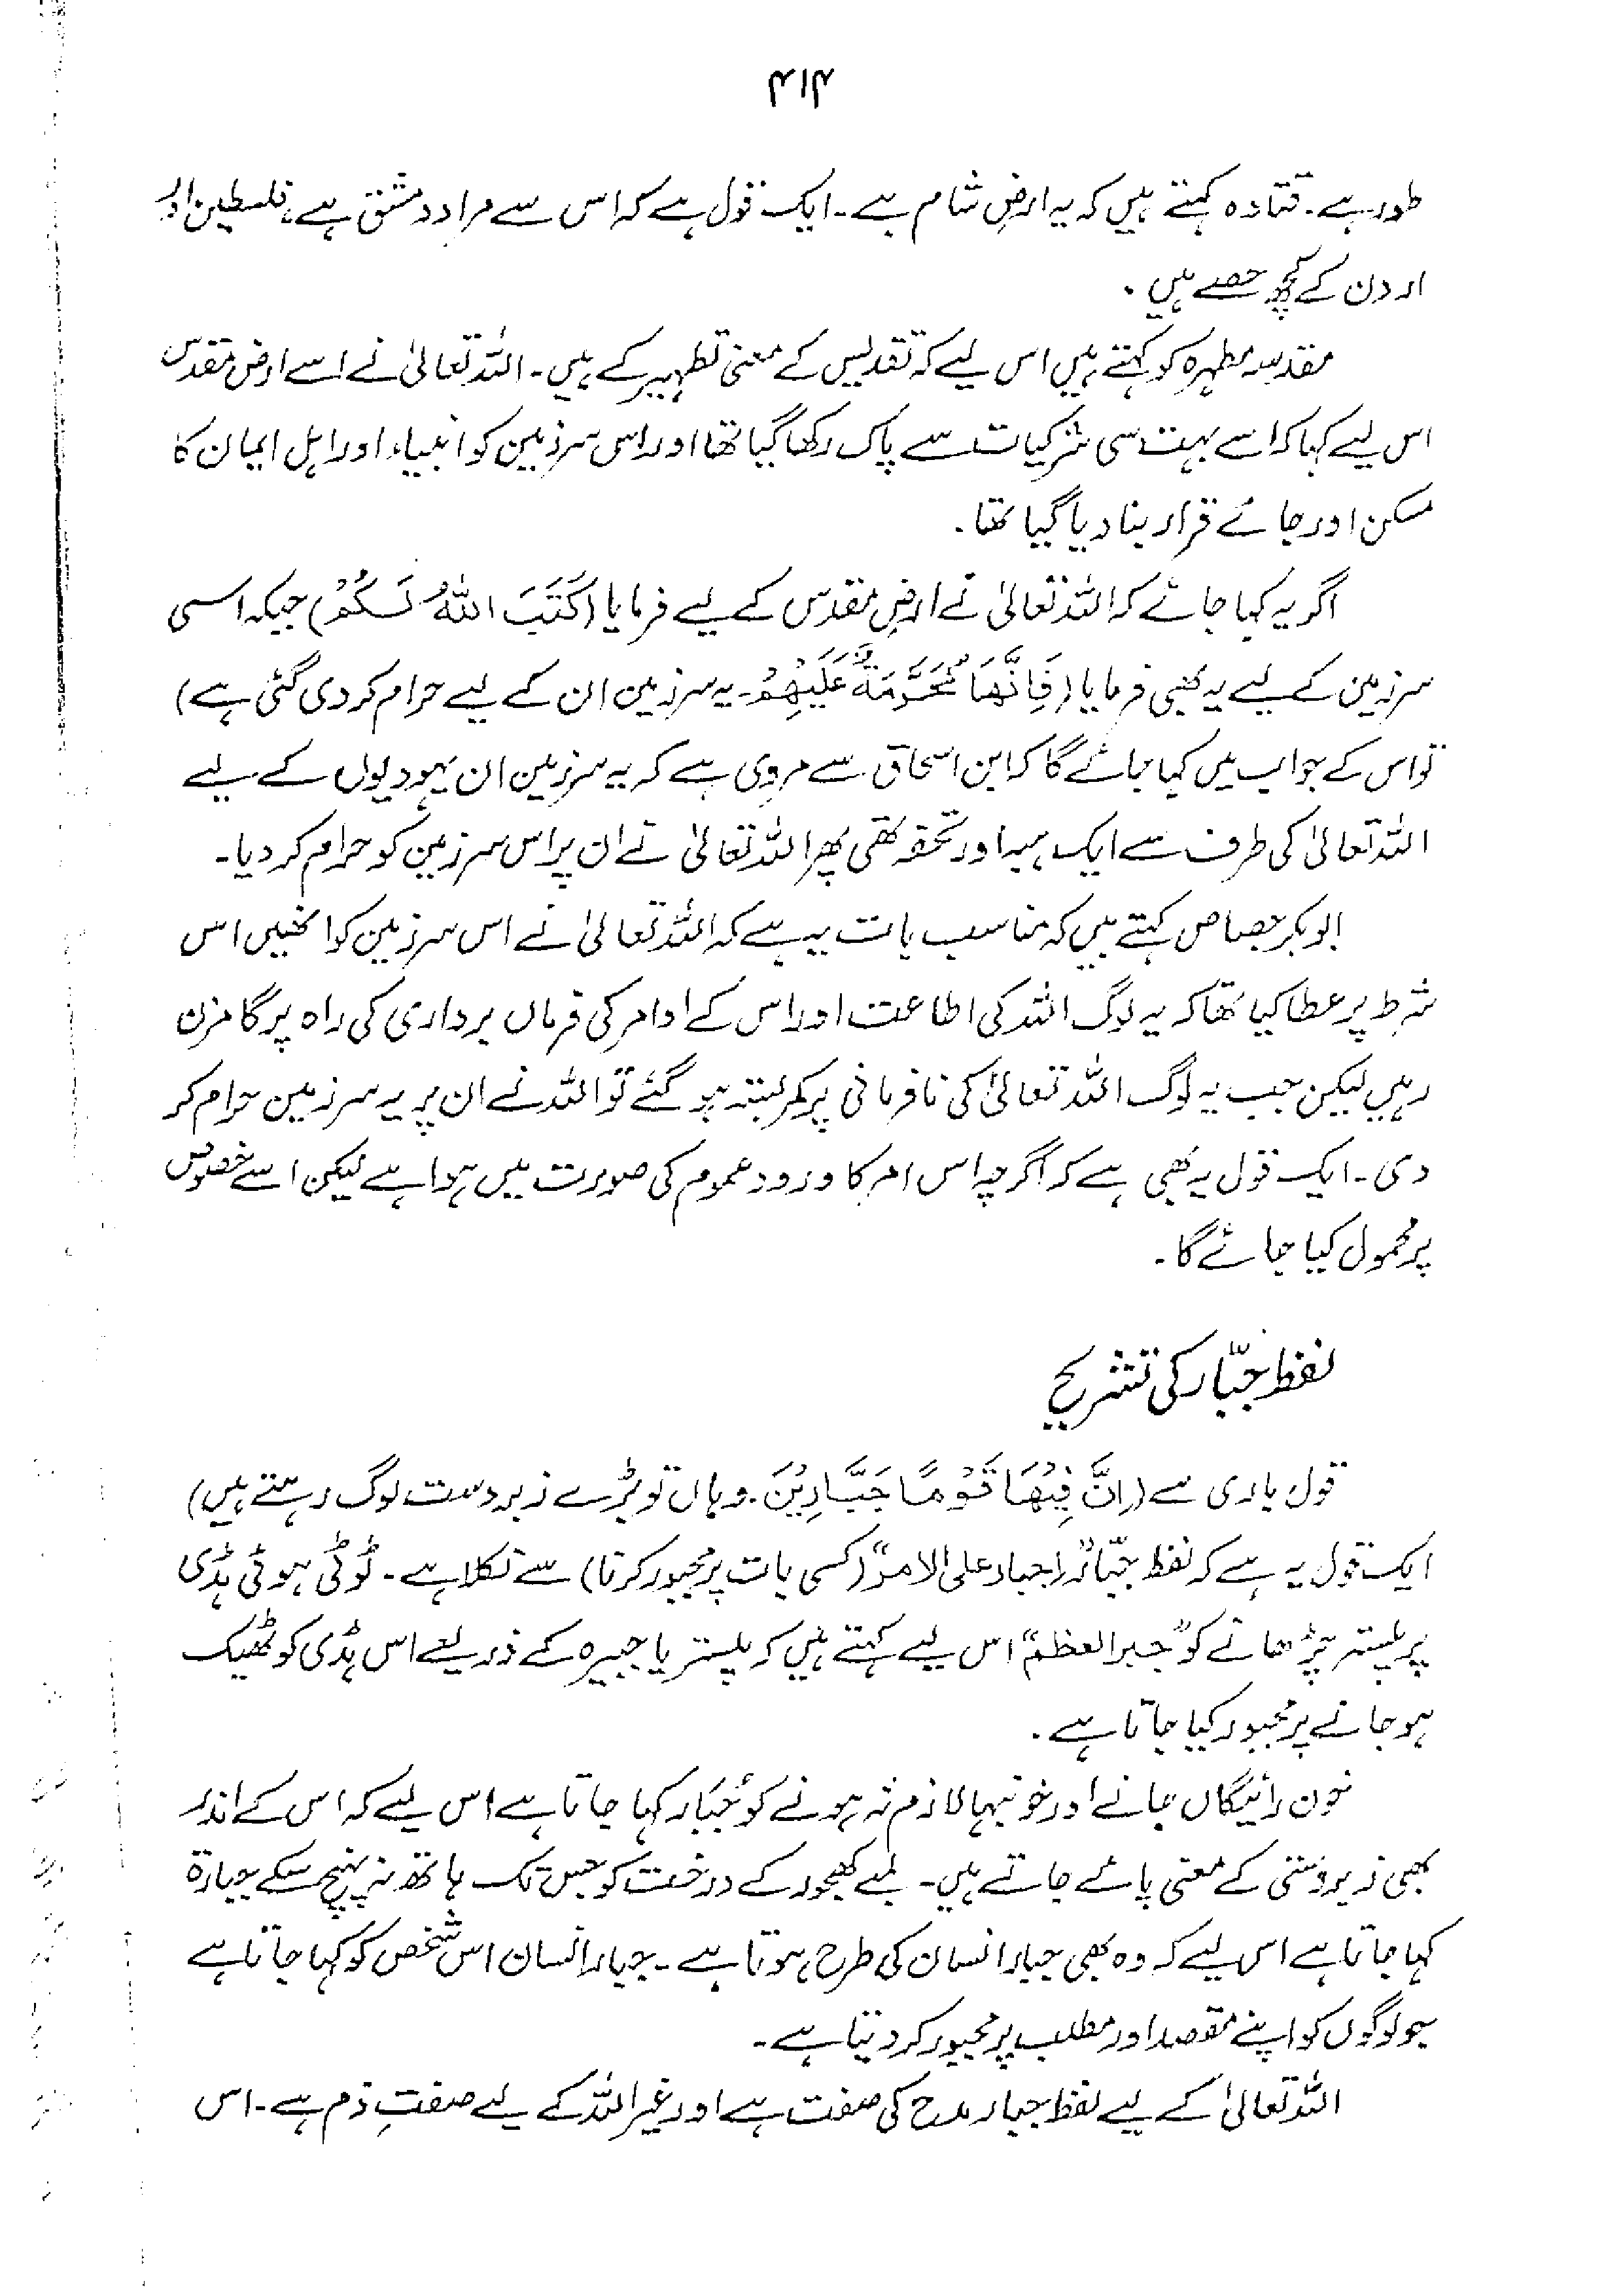 ۴۱۴
طور ہے۔ قتادہ کہتے ہیں کہ یہ ارضِ شام ہے۔ ایک قول ہے کہ اس سے مراد دمشق ہے، فلسطین اور
اردن کے کچھ حصے ہیں۔
مقدسہ مطہرہ کو کہتے ہیں اس لیے کہ تقدیس کے معنی تطہیر کے ہیں۔ اللہ تعالیٰ نے اسے ارض مقدس
اس لیے کہا کہ اسے بہت سی شرکیات سے پاک رکھا گیا تھا اور اس سرزمین کو انبیاء اور اہل ایمان کا
مسکن اور جائے قرار بنا دیا گیا تھا۔
اگر یہ کہا جائے کہ اللہ تعالیٰ نے ارضِ مقدس کے لیے فرمایا (كَتَبَ اللّٰهُ لَكُمْ) جبکہ اسی
سرزمین کے لیے یہ بھی فرمایا (فَاِنَّهَا مُحَرَّمَةٌ عَلَيْهِمْ۔ یہ سرزمین ان کے لیے حرام کر دی گئی ہے)
تو اس کے جواب میں کہا جائے گا کہ ابن اسحاق سے مروی ہے کہ یہ سرزمین ان یہودیوں کے لیے
اللہ تعالیٰ کی طرف سے ایک ہبہ اور تحفہ تھی پھر اللہ تعالیٰ نے ان پر اس سرزمین کو حرام کر دیا۔
ابوبکر جصاص کہتے ہیں کہ مناسب بات یہ ہے کہ اللہ تعالیٰ نے اس سرزمین کو انھیں اس
شرط پر عطا کیا تھا کہ یہ لوگ اللہ کی اطاعت اور اس کے اوامر کی فرماں برداری کی راہ پر گامزن
رہیں لیکن جب یہ لوگ اللہ تعالیٰ کی نافرمانی پر کمربستہ ہو گئے تو اللہ نے ان پر یہ سرزمین حرام کر
دی۔ ایک قول یہ بھی ہے کہ اگرچہ اس امر کا ورود عموم کی صورت میں ہوا ہے لیکن اسے خصوص
پر محمول کیا جائے گا۔
لفظ جبّار کی تشریح
قول باری ہے (اِنَّ فِيْهَا قَوْمًا جَبَّارِيْنَ۔ وہاں تو بڑے زبردست لوگ رہتے ہیں)
ایک قول یہ ہے کہ لفظ جبّار "اجبار علی الامر" (کسی بات پر مجبور کرنا) سے نکلا ہے۔ ٹوٹی ہوئی ہڈی
پر پلستر چڑھانے کو "جبر العظم" اس لیے کہتے ہیں کہ پلستر یا جبیرہ کے ذریعے اس ہڈی کو ٹھیک
ہو جانے پر مجبور کیا جاتا ہے۔
خون رائیگاں جانے اور خونبہا لازم نہ ہونے کو جُبَار کہا جاتا ہے اس لیے کہ اس کے اندر
بھی زبردستی کے معنی پائے جاتے ہیں۔ لمبے کھجور کے درخت کو جس تک ہاتھ نہ پہنچ سکے جبارۃ
کہا جاتا ہے اس لیے کہ وہ بھی جبار انسان کی طرح ہوتا ہے۔ جبار انسان اس شخص کو کہا جاتا ہے
جو لوگوں کو اپنے مقصد اور مطلب پر مجبور کر دیتا ہے۔
اللہ تعالیٰ کے لیے لفظ جبار مدح کی صفت ہے اور غیر اللہ کے لیے صفتِ ذم ہے۔ اس